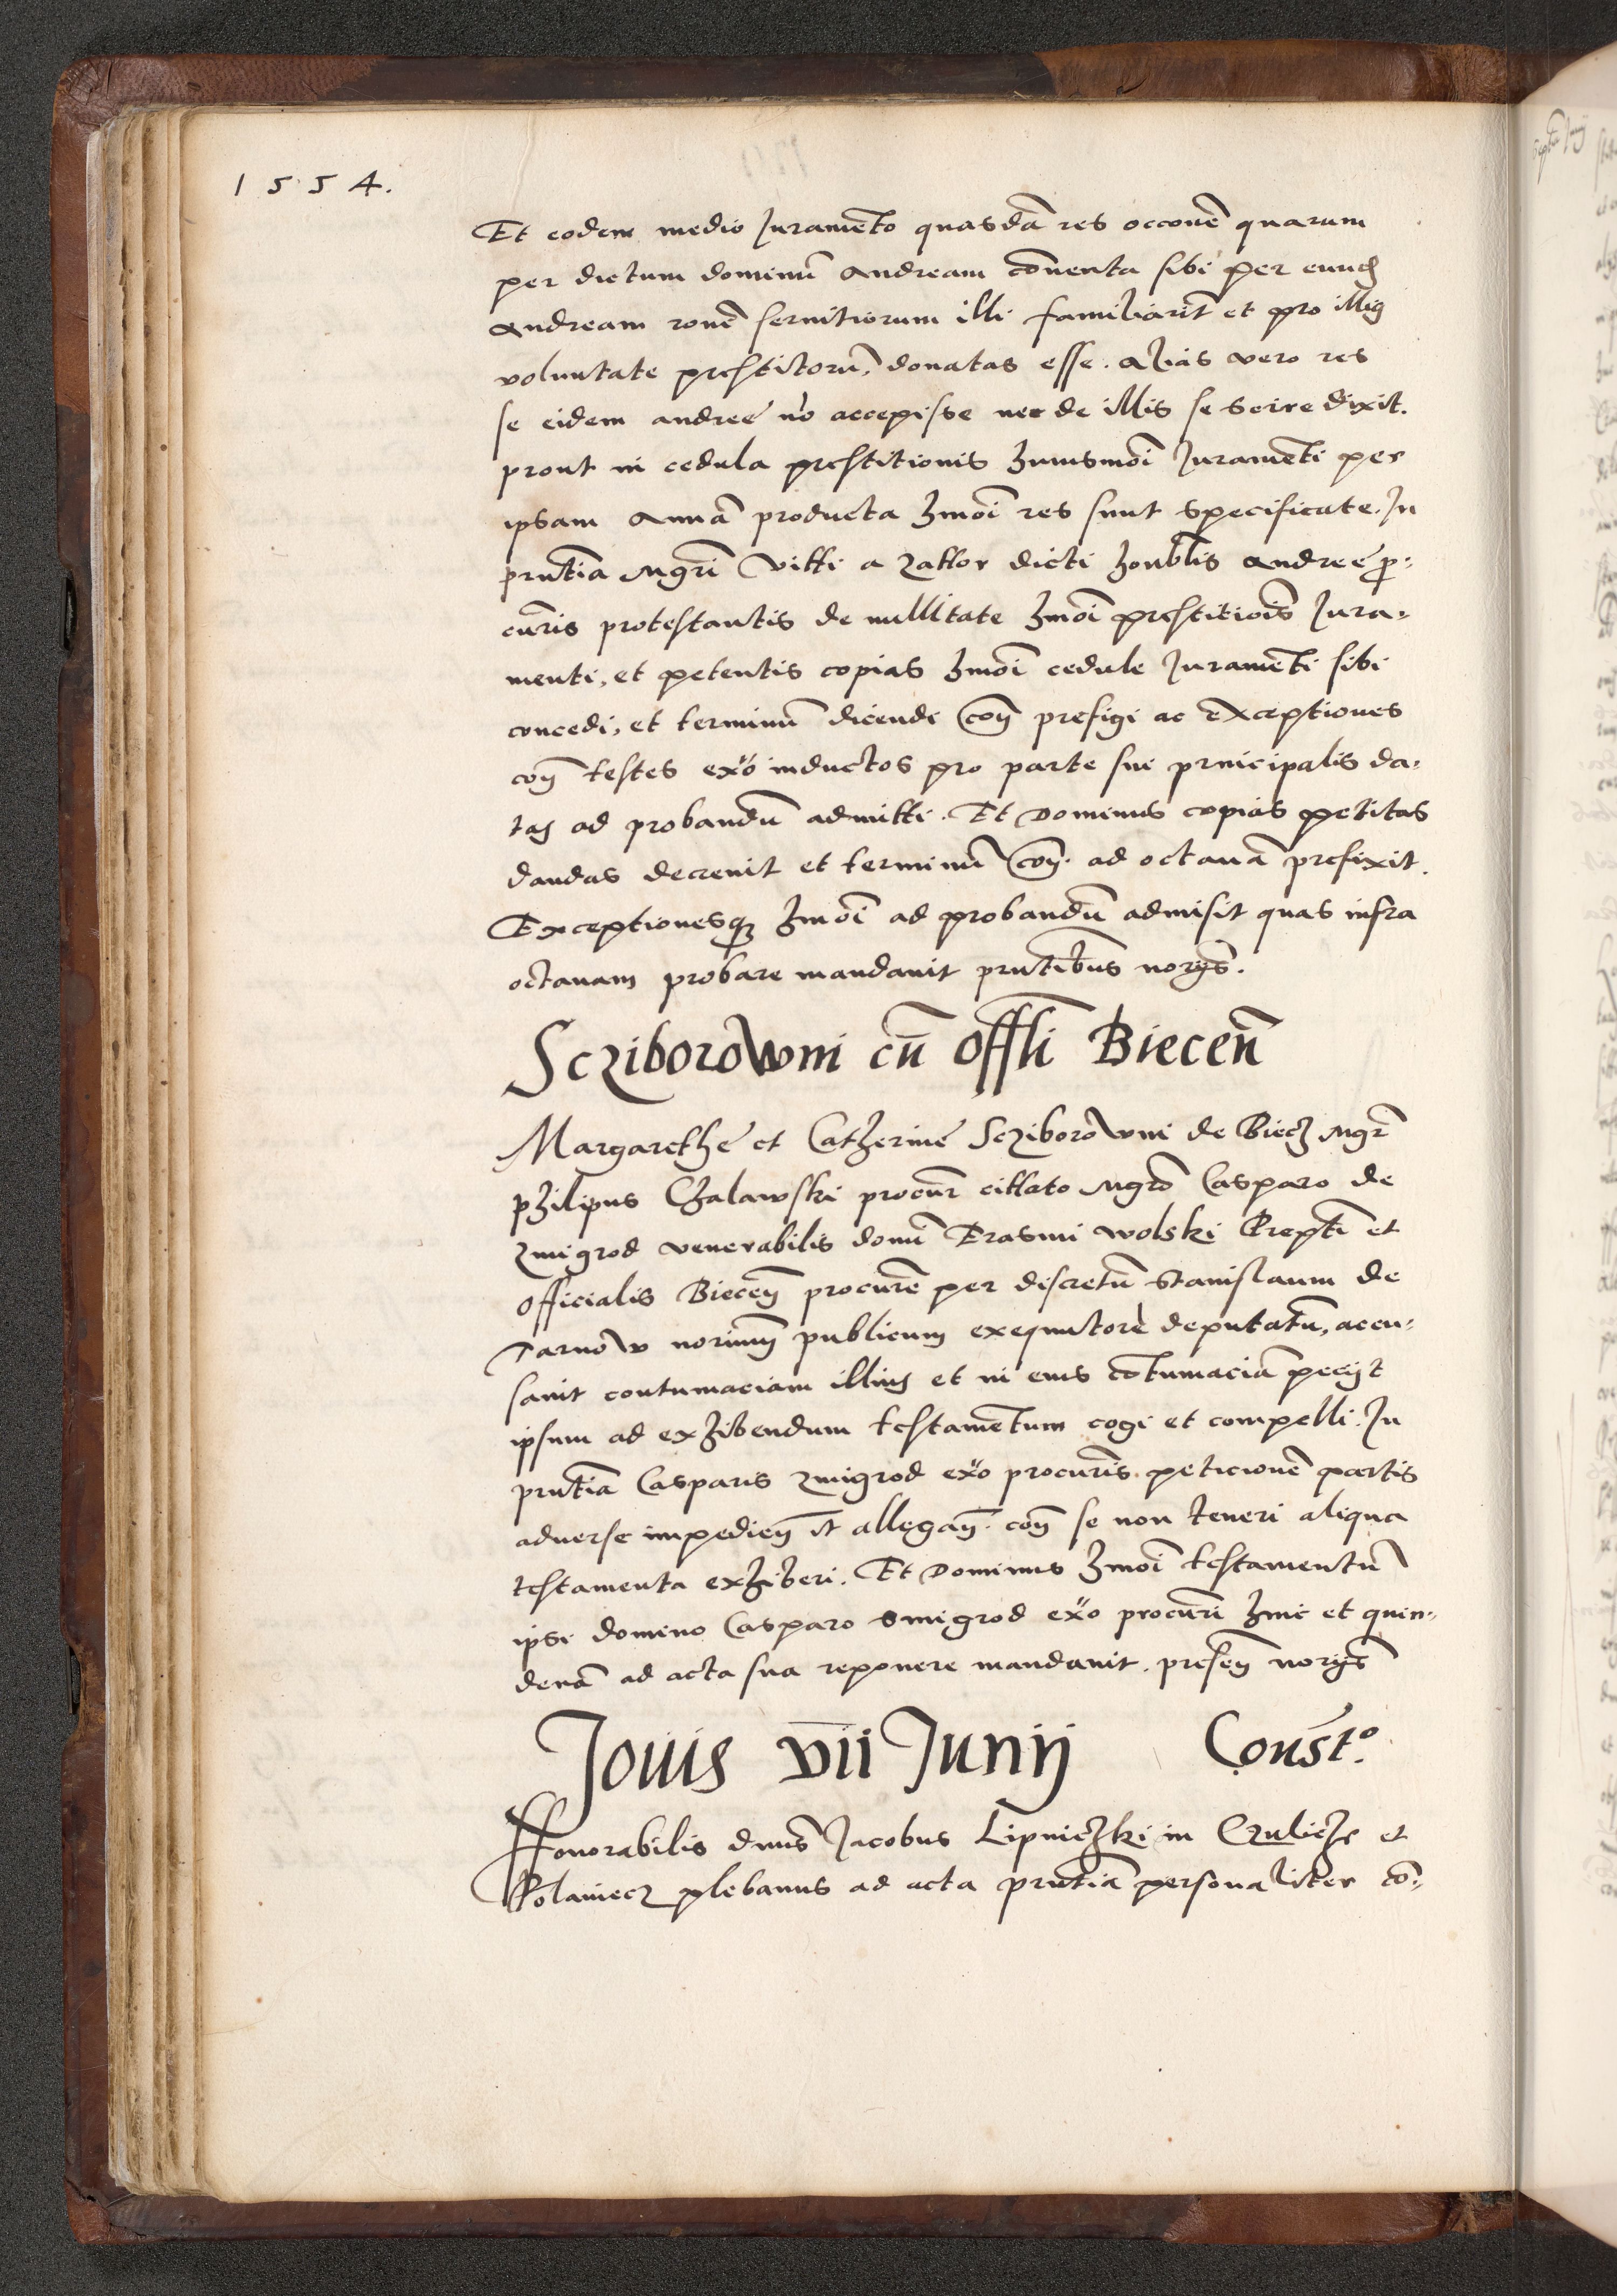 1554.
Et eodem medio Juramēto quasdā res occonē quarum
per dictum dominū Andream cōuenta sibi per eundē
Andream ronē seruitiorum illi familiarit̄ et pro illig
voluntate prestitorū, donatas esse. Alias vero res
se eidem andree nō accepisse nec de illis se scire dixit.
prout in cedula prestitionis huiusmōi Juramēti per
ipsam Annā producta hmōi res sunt specificate. In
prntia Mgrī Vitti a Zattor dicti honblis Andree pro-
curīs protestantis de nullitate hmōi prestitiōis Jura-
menti, et petentis copias hmōi cedule Juramēti sibi
concedi, et terminū dicendi con prefigi ac exceptiones
con testes exo inductos pro parte sui principalis da-
tas ad probandū admitti. Et Dominus copias petitas
dandas decreuit et terminū con. ad octauā prefixit.
Exceptionesq hmōi ad probandū admisit quas infra
octauam probare mandauit prntibus norijs.
Scziborowni cū offli Biecen̄
Margarethe et Catherine Scziborowni de Biecz Mgr̄
philipus Chalawski procur̄ cittato Mgrō Casparo de
Zmigrod venerabilis domī Erasmi Wolski Prepti et
officialis Biecen̄ procurē per discretū Stanislaum de
Tarnow norium publicum exequutorē deputatū, accu-
sauit contumaciam illius et in eius cōtumaciā pecijt
ipsum ad exhibendum testamentum cogi et compelli. In
prntia Casparis Zmigrod exo procurīs peticionē partis
aduerse impedien̄ it allegan̄. con se non teneri aliqua
testamenta exhiberi. Et Dominus hmōi testamentū
ipsi domino Casparo Smigrod exo procurī hinc et quin-
denā ad acta sua reponere mandauit. presen̄ norijs
Jouis vii Junij Const.º
Honorabilis dnus Jacobus Lipniczki in Czulicze et
Polaniecz plebanus ad acta prntia personaliter cō-